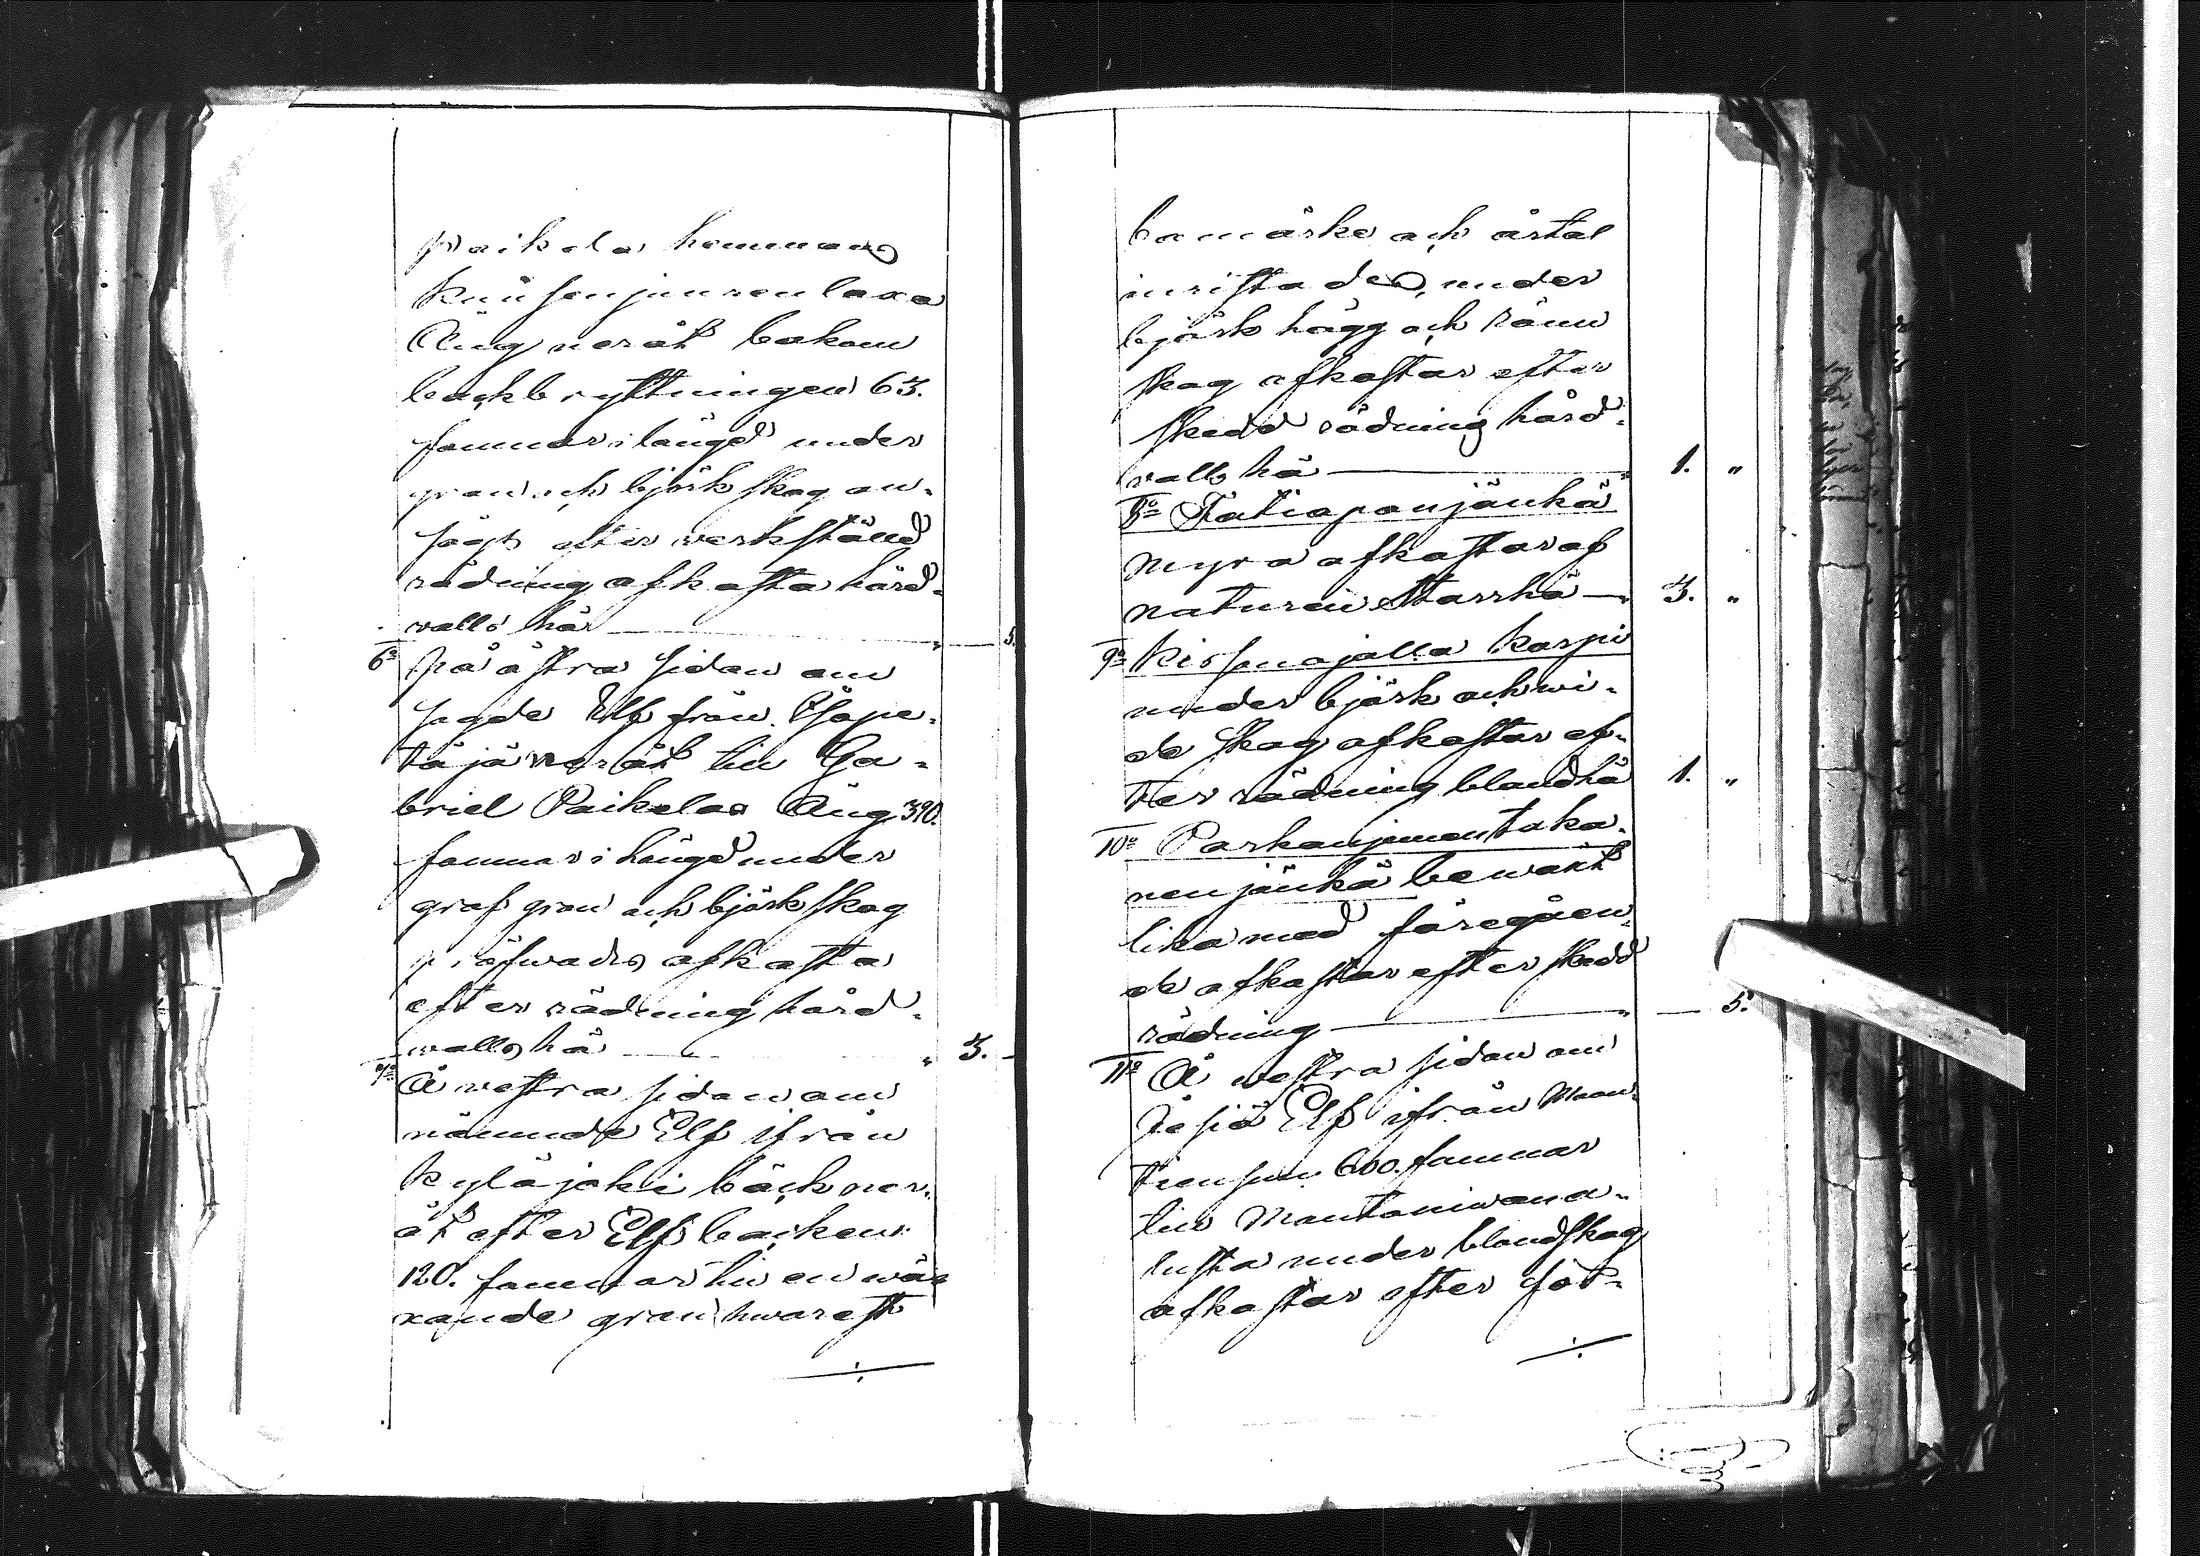 Paikela hemmans
Kuusenjuurenlaxa
Äng neråt bakom
backbrytningen 63.
famnar i längd under
gran och björk skog an-
sågs efter werkställd
rödning afkasta hård-
valls hö " 5.
6:o På östra sidan om
sagde Elf från
täjä neråt till Ga-
briel Paikelas Äng 390.
famnar i längd under
graf gran och björk skog
pröfwades afkasta
efter rödning hård-
walls hö " 3.
7:o Å westra sidan om
nämnde Elf ifrån
Kyläjoki bäck ner-
åt efter Elfs backen
120. famnar till en wä-
xande gran hwarest
bomärke och årtal
inristades, under
björk hägg och rönn
skog afkastar efter
skedd rödning hård-
valls hö " 1. "
8:o Katiapanjänkä
myra afkastar af
naturen Starrhö " 3. "
9:o Kiosenojalla korpi
under björk och wi-
de skog afkastar ef-
ter rödning blandhö 1. "
10:o Parkanjementaka-
nenjänkä bewäxt
lika med föregåen-
de afkastar efter skedd
rödning " 5.
11:o Å westra sidan om
Jesiö Elf ifrån Maan-
tiensuu 600. famnar
till Mantaniwana-
lusta under blandskog
afkastar efter för-